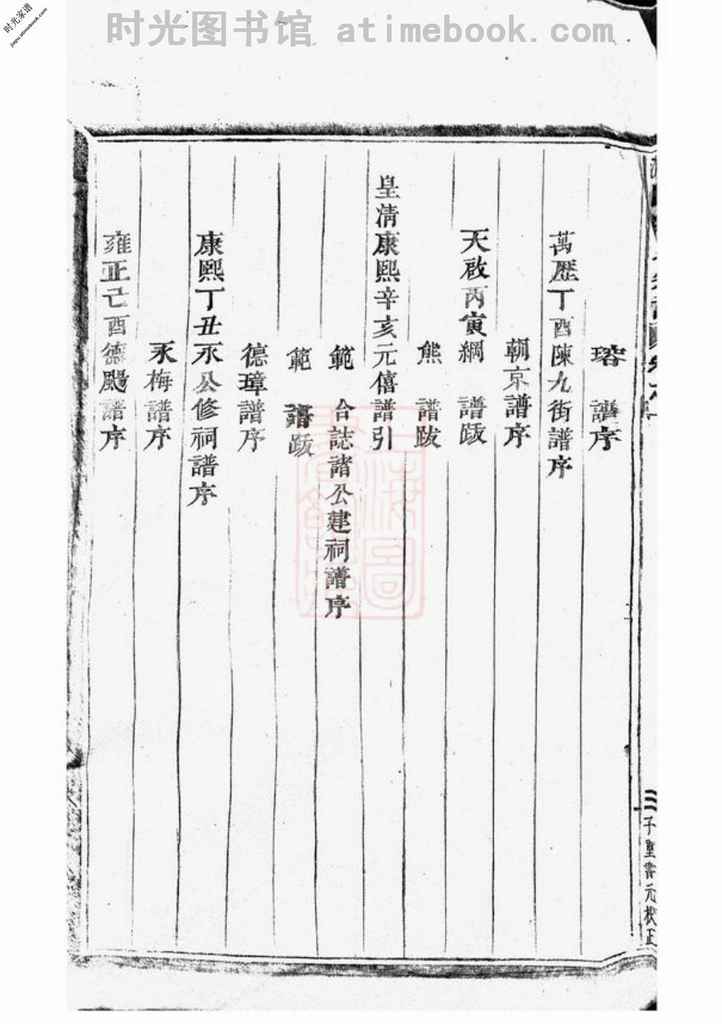 时光图书馆 atimebook.com
时光家谱
jiapu.atimebook.com
瑢 譜序
萬歷丁酉陳九街譜序
朝京譜序
天啟丙寅綱 譜跋
熊 譜跋
皇清康熙辛亥元僖譜引
範 合誌諸公建祠譜序
範 譜跋
德璋譜序
康熙丁丑永公修祠譜序
永梅譜序
雍正己酉德颺譜序
子聖 元校正